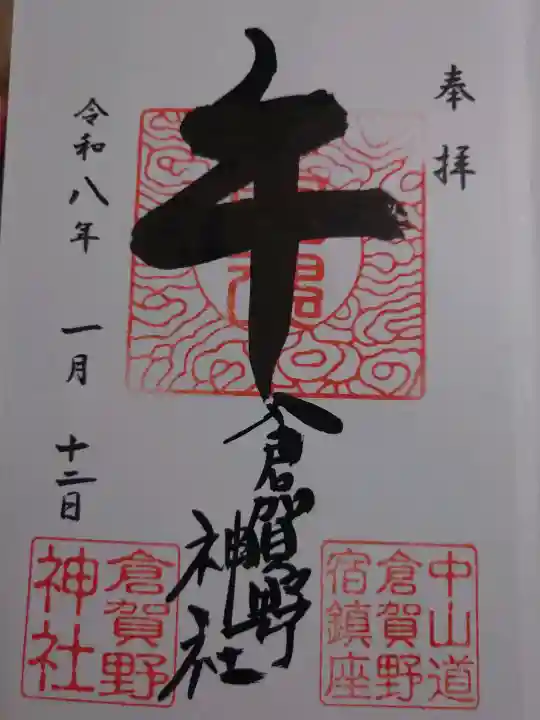 奉拝
午
倉賀野
神社
令和八年 一月 十二日
中山道
倉賀野
宿鎮座
倉賀野
神社